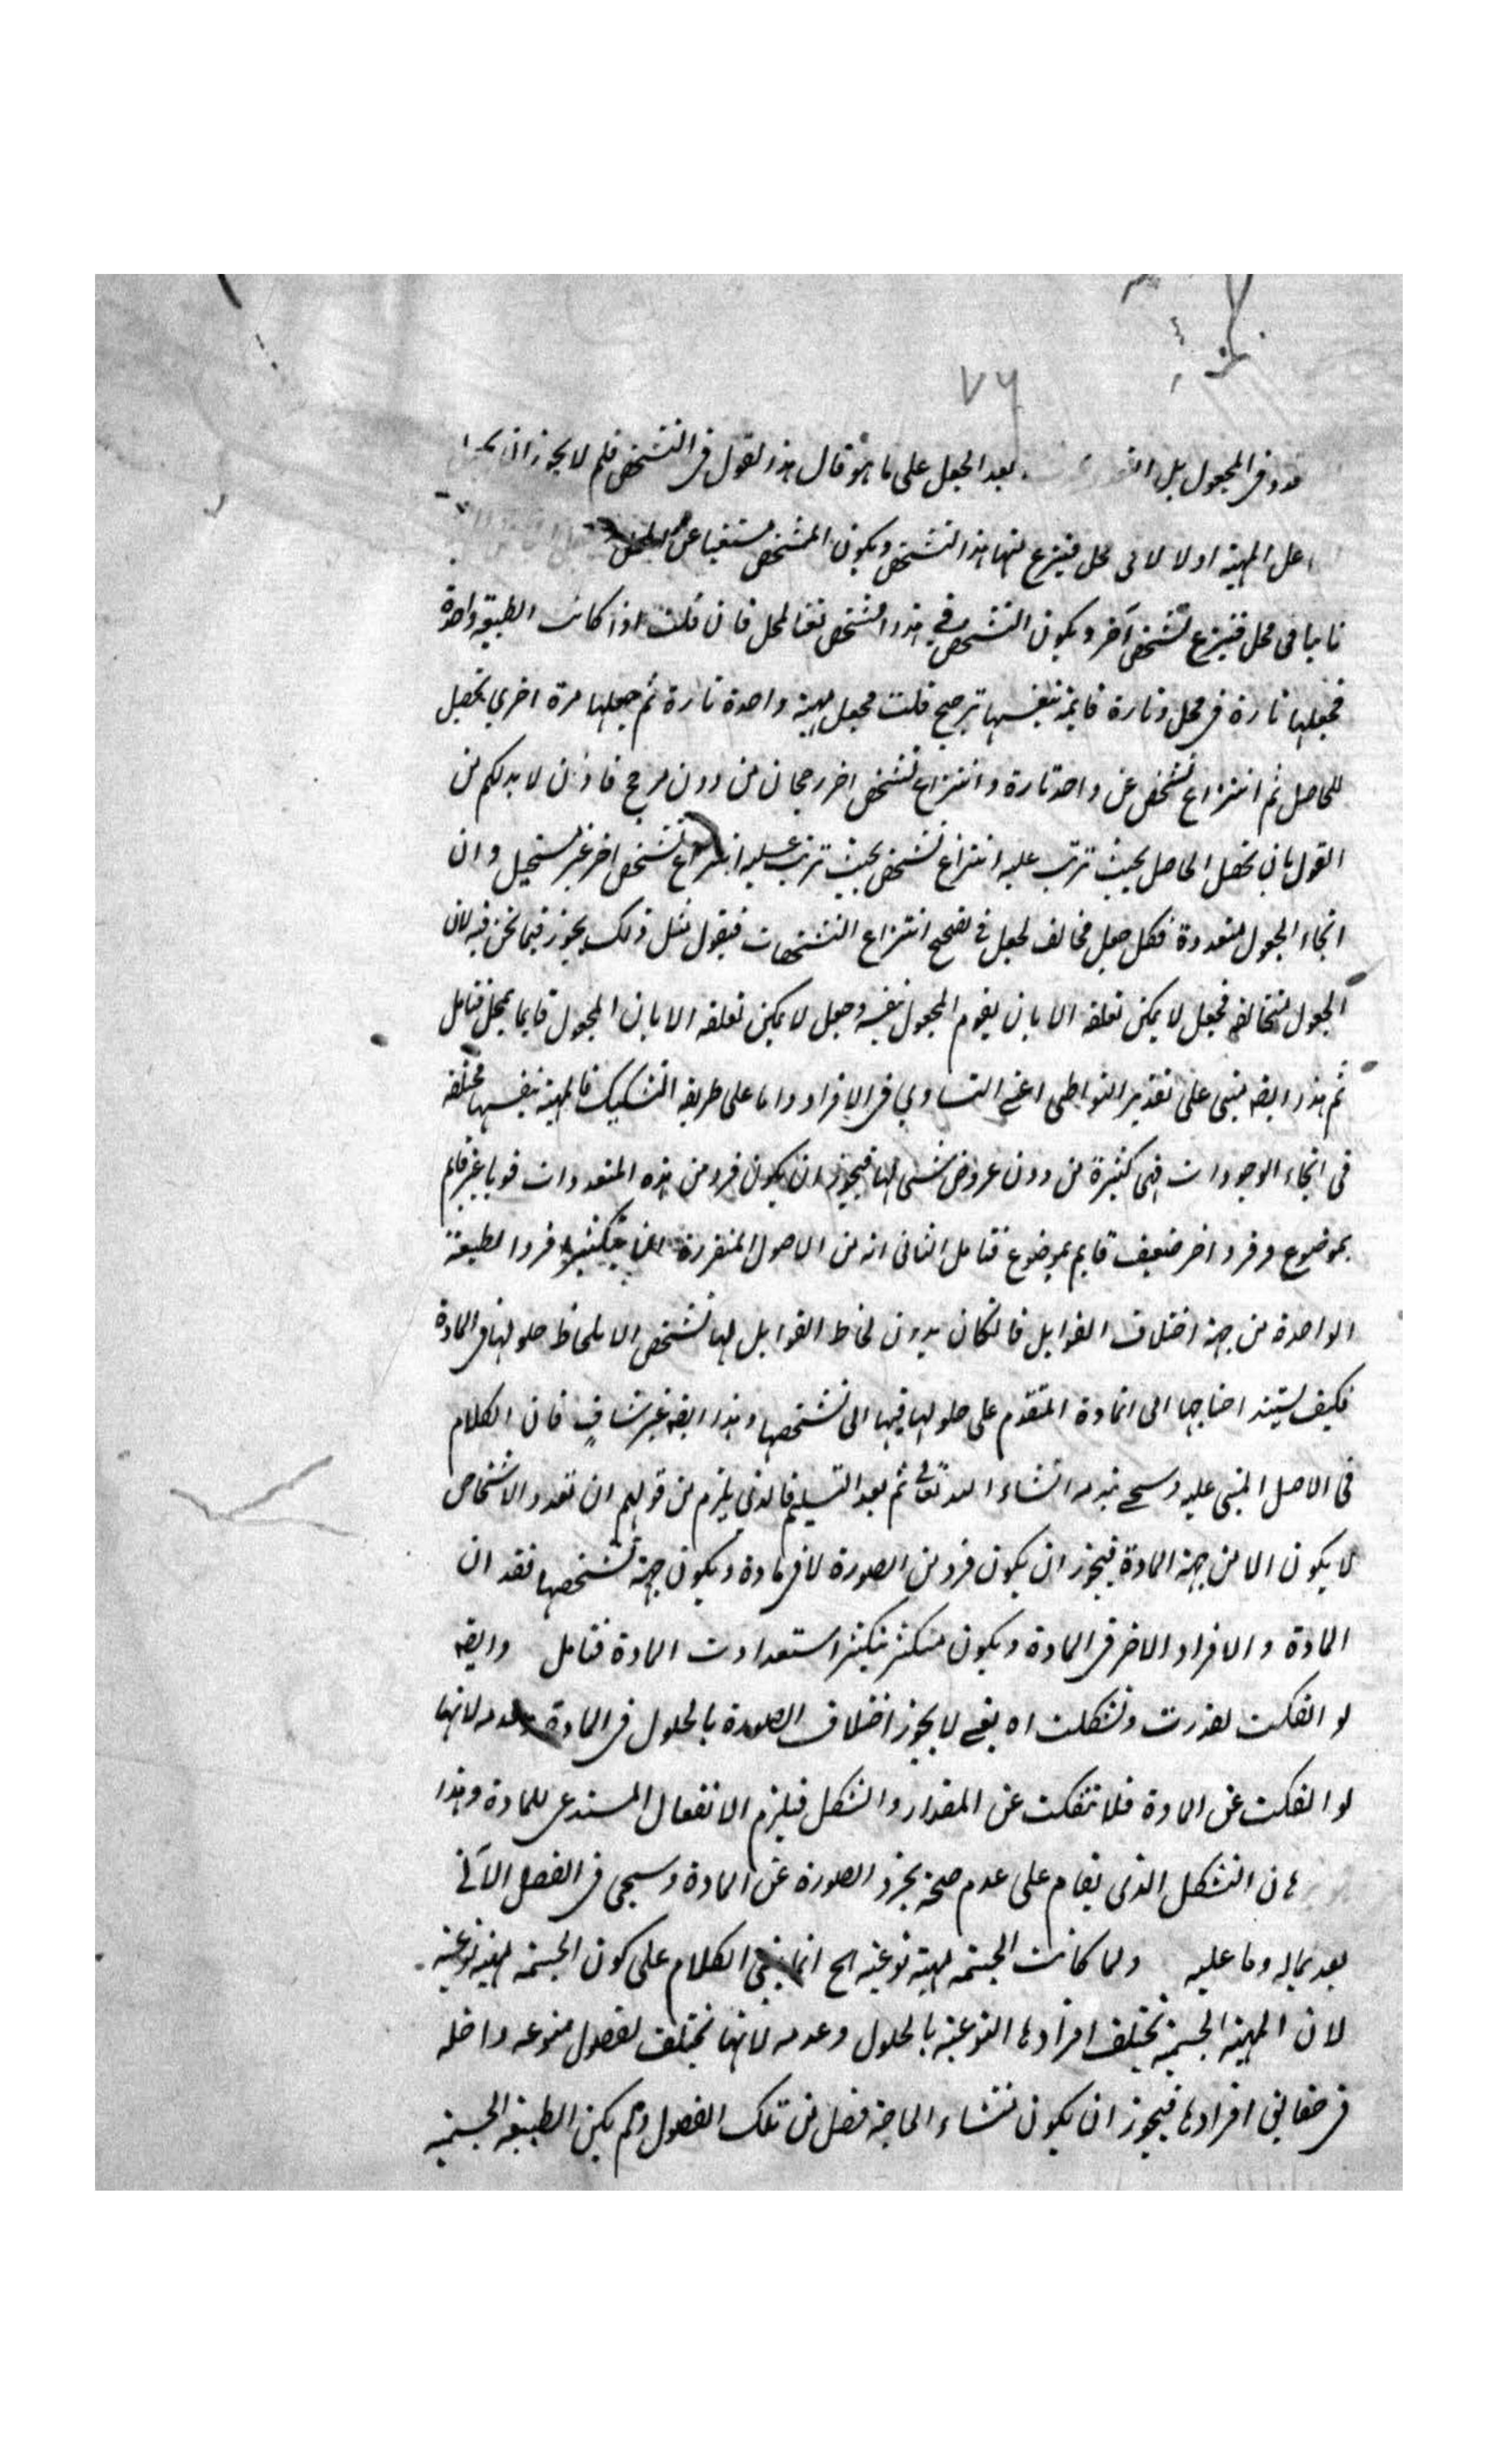 ٧٦
تعدد فى المجعول بل بعد الجعل على ما هو قال هذا لقول فى التشخص فلم لا يجوز ان
اعل المهية اولا لا فى محل فينزع منها هذا التشخص ويكون المشخص مستغنيا عن المحل
ثانيا فى محل فينزع تشخص آخر ويكون التشخص فى هذا المشخص نفا لمحل فان قلت اذا كانت الطبيعة واحدة
فجعلها تارة فى محل وتارة قايمة بنفسها ترجيح قلت فجعل مهية واحدة تارة ثم جعلها مرة اخرى تحصيل
للحاصل ثم انتزاع تشخص عن واحد تارة وانتزاع تشخص اخر رجحان من دون مرجح فاذن لا بد لكم من
القول بان تحصل الحاصل بحيث ترتب عليه انتزاع تشخص بحيث ترتب عليه انتزاع تشخص اخر غير مستحيل وان
انحاء الجعول متعددة فكل جعل مخالف لجعل فى تصحيح انتزاع التشخصات فيقول مثل ذلك يجوز فيما نحن فيه لان
الجعول متخالفة فجعل لا يمكن تعلقه الا بان يقوم المجعول بنفسه وجعل لا يمكن تعلقه الا بان المجعول قايما بمحل فتامل
ثم هذا ايضه مبنى على تقدير التواطى اعنى التساوى فى الافراد واما على طريقه التشكيك فالمهية بنفسها مختلفه
فى انحاء الوجودات فهى كثيرة من دون عروض شى لها فيجوز ان يكون فرد من هذه المتعددات قويا غير قايم
بموضوع وفرد اخر ضعيف قايم بموضوع فتامل الثانى انه من الاصول المتقررة افراد الطبيعة
الواحدة من جهة اختلاف القوابل فالكان بدون لحاظ القوابل لها تشخص الا بلحاظ حلولها فى المادة
فكيف يستند احتياجها الى المادة المتقدم على حلولها فيها الى تشخصها وهذا ايضه غير شاف فان الكلام
فى الاصل المبنى عليه وسيجئ نبذ منه انشاء الله تعالى ثم بعد التسليم فالذى يلزم من قولهم ان تعدد الاشخاص
لا يكون الا من جهة المادة فيجوز ان يكون فرد من الصورة لا فى مادة ويكون جهة تشخصها فقدان
المادة والافراد الاخر فى المادة ويكون متكثر بتكثر استعدادت المادة فتامل وايضه
لو انفكت لقدرت وتشكلت اه يعنى لا يجوز اختلاف الصورة بالحلول فى المادة وعدمه لانها
لو انفكت عن المادة فلا تنفكت عن المقدار والشكل فيلزم الانفعال المستدعى للمادة وهذا
هان التشكل الذى يقام على عدم صحة تجرد الصورة عن المادة وسيجى فى الفصل الآتى
بعد بماله وما عليه ولما كانت الجسمية مهية نوعية الخ انما ينبغى الكلام على كون الجسمية مهية نوعية
لان المهية الجسمية تختلف افرادها النوعية بالحلول وعدمه لانها تختلف بفصول منوعه داخله
فى حقايق افرادها فيجوز ان يكون منشاء الحاجة فصل من تلك الفصول ولم يكن الطبيعة الجسمية